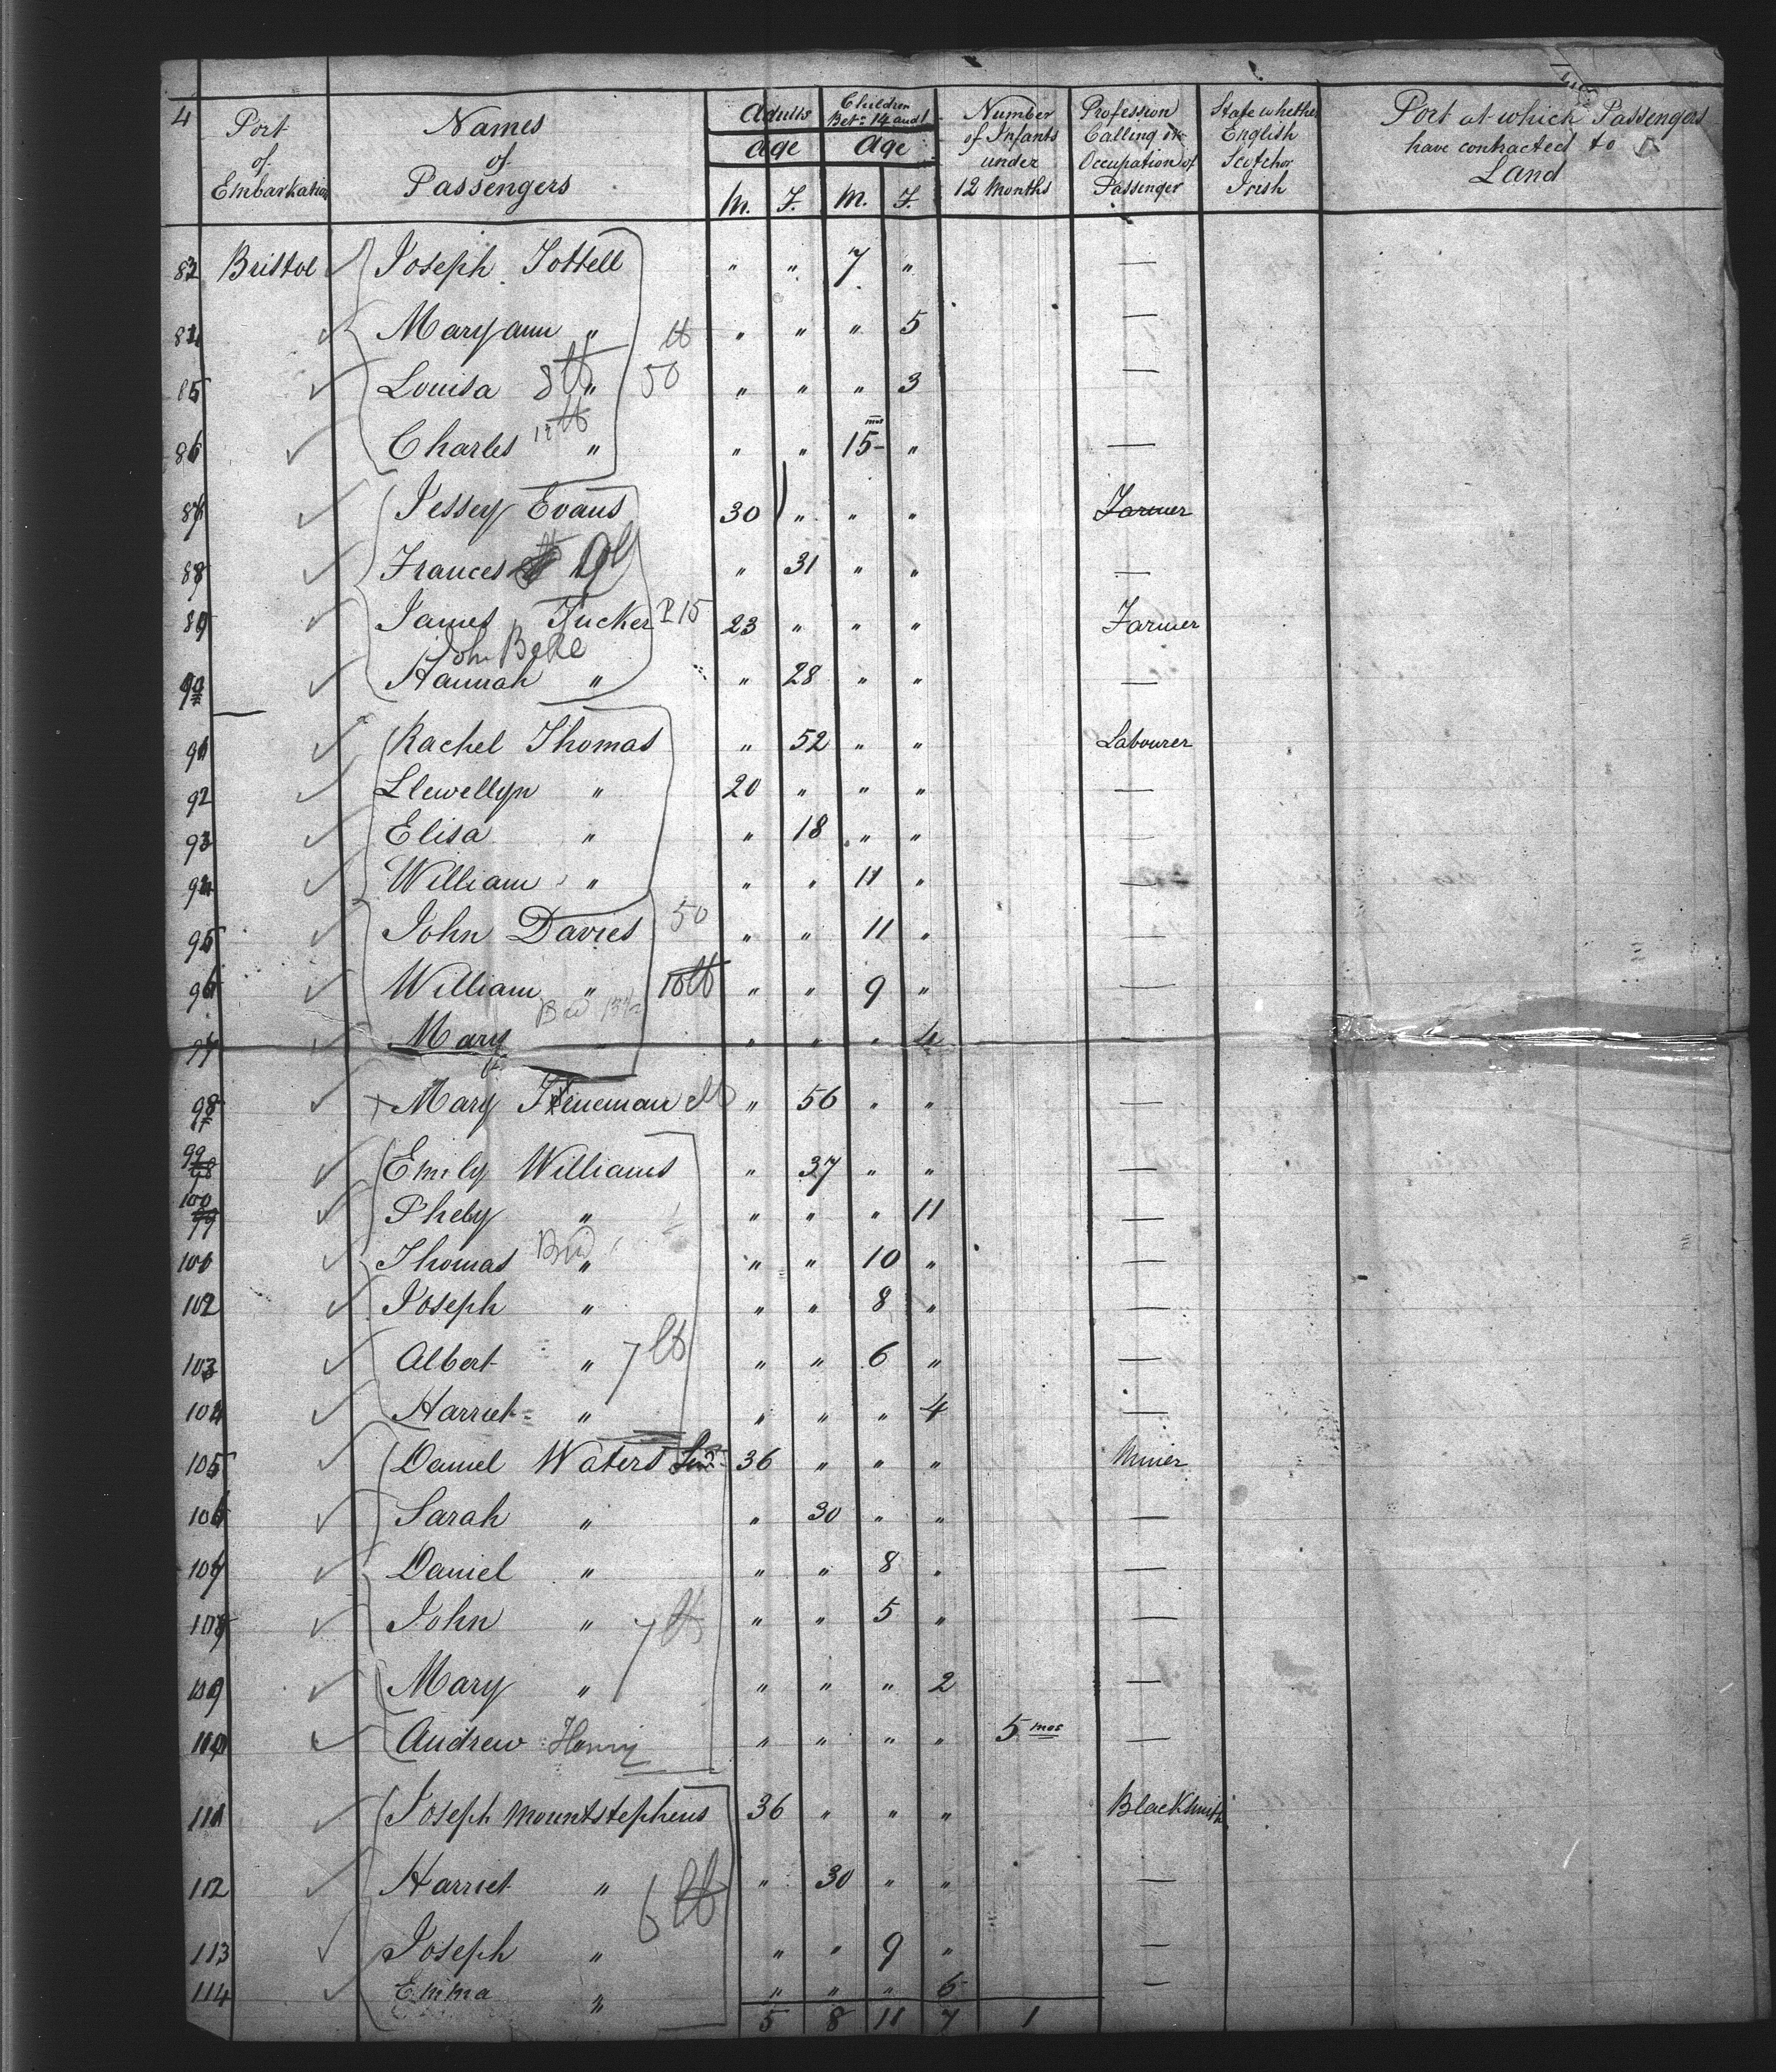 4
Port of Embarkation | Names of Passengers | Adults Age M. F. | Children Bet: 14 and 1 Age M. F. | Number of Infants under 12 Months | Profession Calling or Occupation of Passenger | State whether English Scotch or Irish | Port at which Passengers have contracted to Land
83 Bristol Joseph Tottell " " 7 " —
84 Maryann " " " " 5 —
85 Louisa " 8 lb 50 " " " 3 —
86 Charles " " " 15 mos " —
87 Jessey Evans 30 " " " Farmer
88 Frances " 31 " " —
89 James Tucker 23 " " " Farmer
John
90 Hannah " " 28 " " —
91 Rachel Thomas " 52 " " Labourer
92 Llewellyn " 20 " " " —
93 Elisa " " 18 " " —
94 William " " " 11 " —
95 John Davies 50 " " 11 " —
96 William " 10 lb " " 9 " —
97 Mary " " " " 4 —
98 Mary " 56 " " —
99 Emily Williams " 37 " " —
100 Pheby " " " " 11 —
101 Thomas " " " 10 " —
102 Joseph " " " 8 " —
103 Albert " 7 lb " " 6 " —
104 Harriet " " " " 4 —
105 Daniel Waters 36 " " " Miner
106 Sarah " " 30 " " —
107 Daniel " " " 8 " —
108 John " 7 lb " " 5 " —
109 Mary " " " " 2 —
110 Andrew Henry " " " " 5 mos —
111 Joseph Mountstephens 36 " " " Blacksmith
112 Harriet " 6 lb " 30 " " —
113 Joseph " " " 9 " —
114 Emma " " " " 6 —
5 8 11 7 1